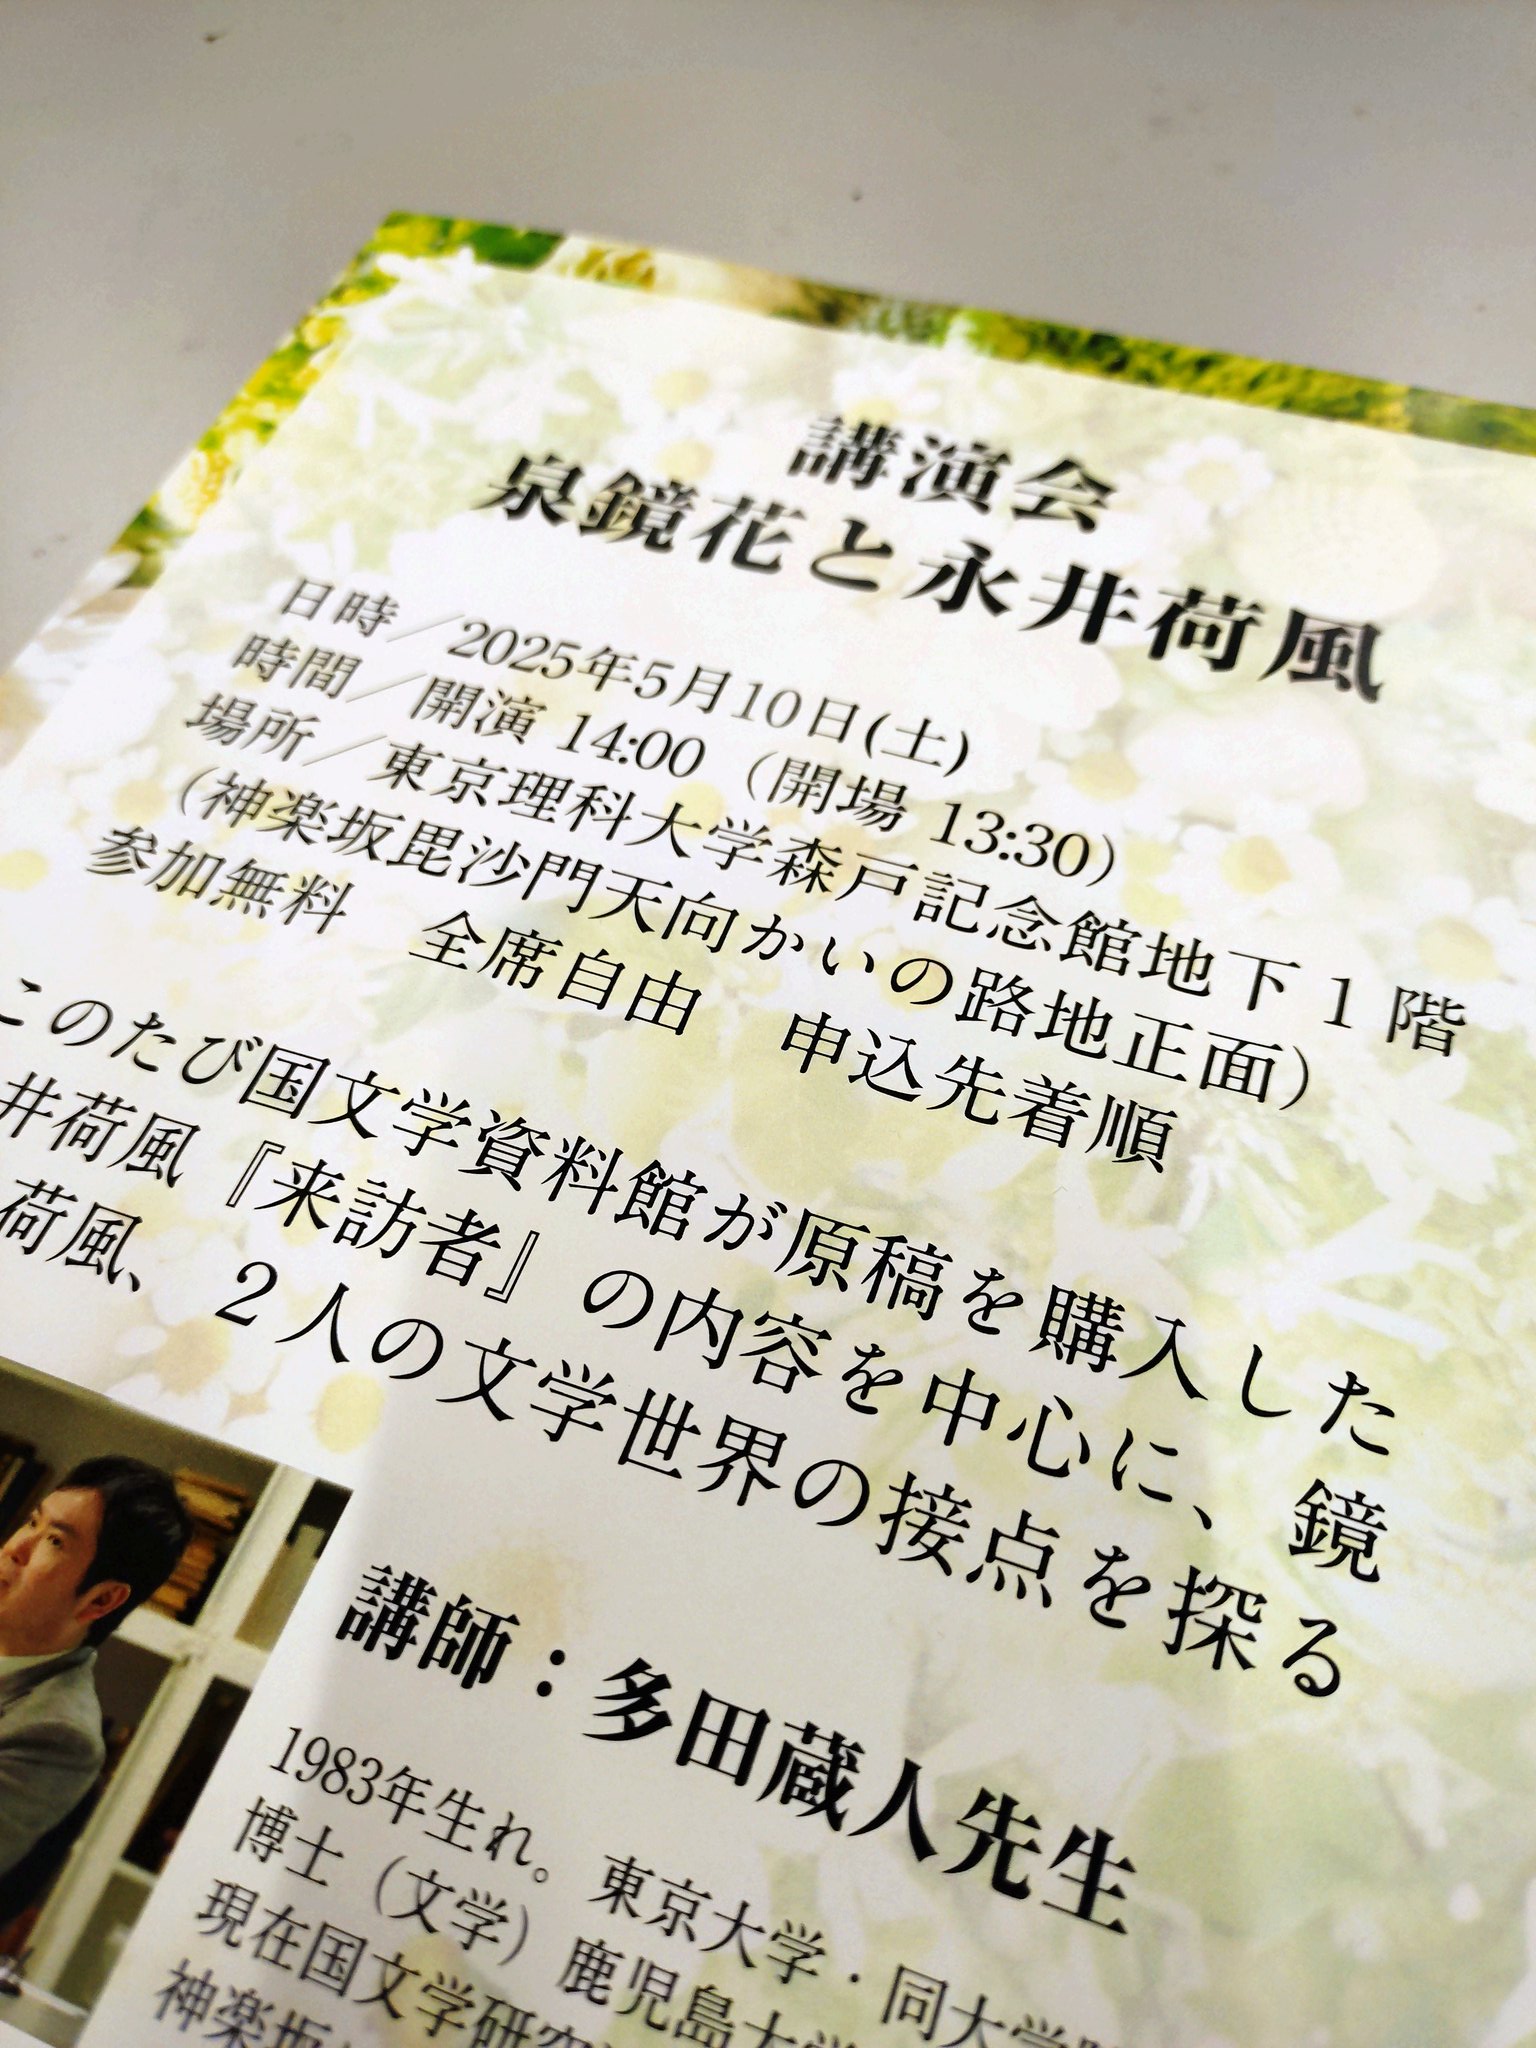 講演会
泉鏡花と永井荷風
日時／2025年5月10日(土)
時間／開演 14:00（開場 13:30）
場所／東京理科大学森戸記念館地下１階
（神楽坂毘沙門天向かいの路地正面）
参加無料　全席自由　申込先着順
このたび国文学資料館が原稿を購入した
井荷風『来訪者』の内容を中心に、鏡
荷風、２人の文学世界の接点を探る
講師：多田蔵人先生
1983年生れ。東京大学・同大学院
博士（文学）鹿児島大学
現在国文学研究
神楽坂